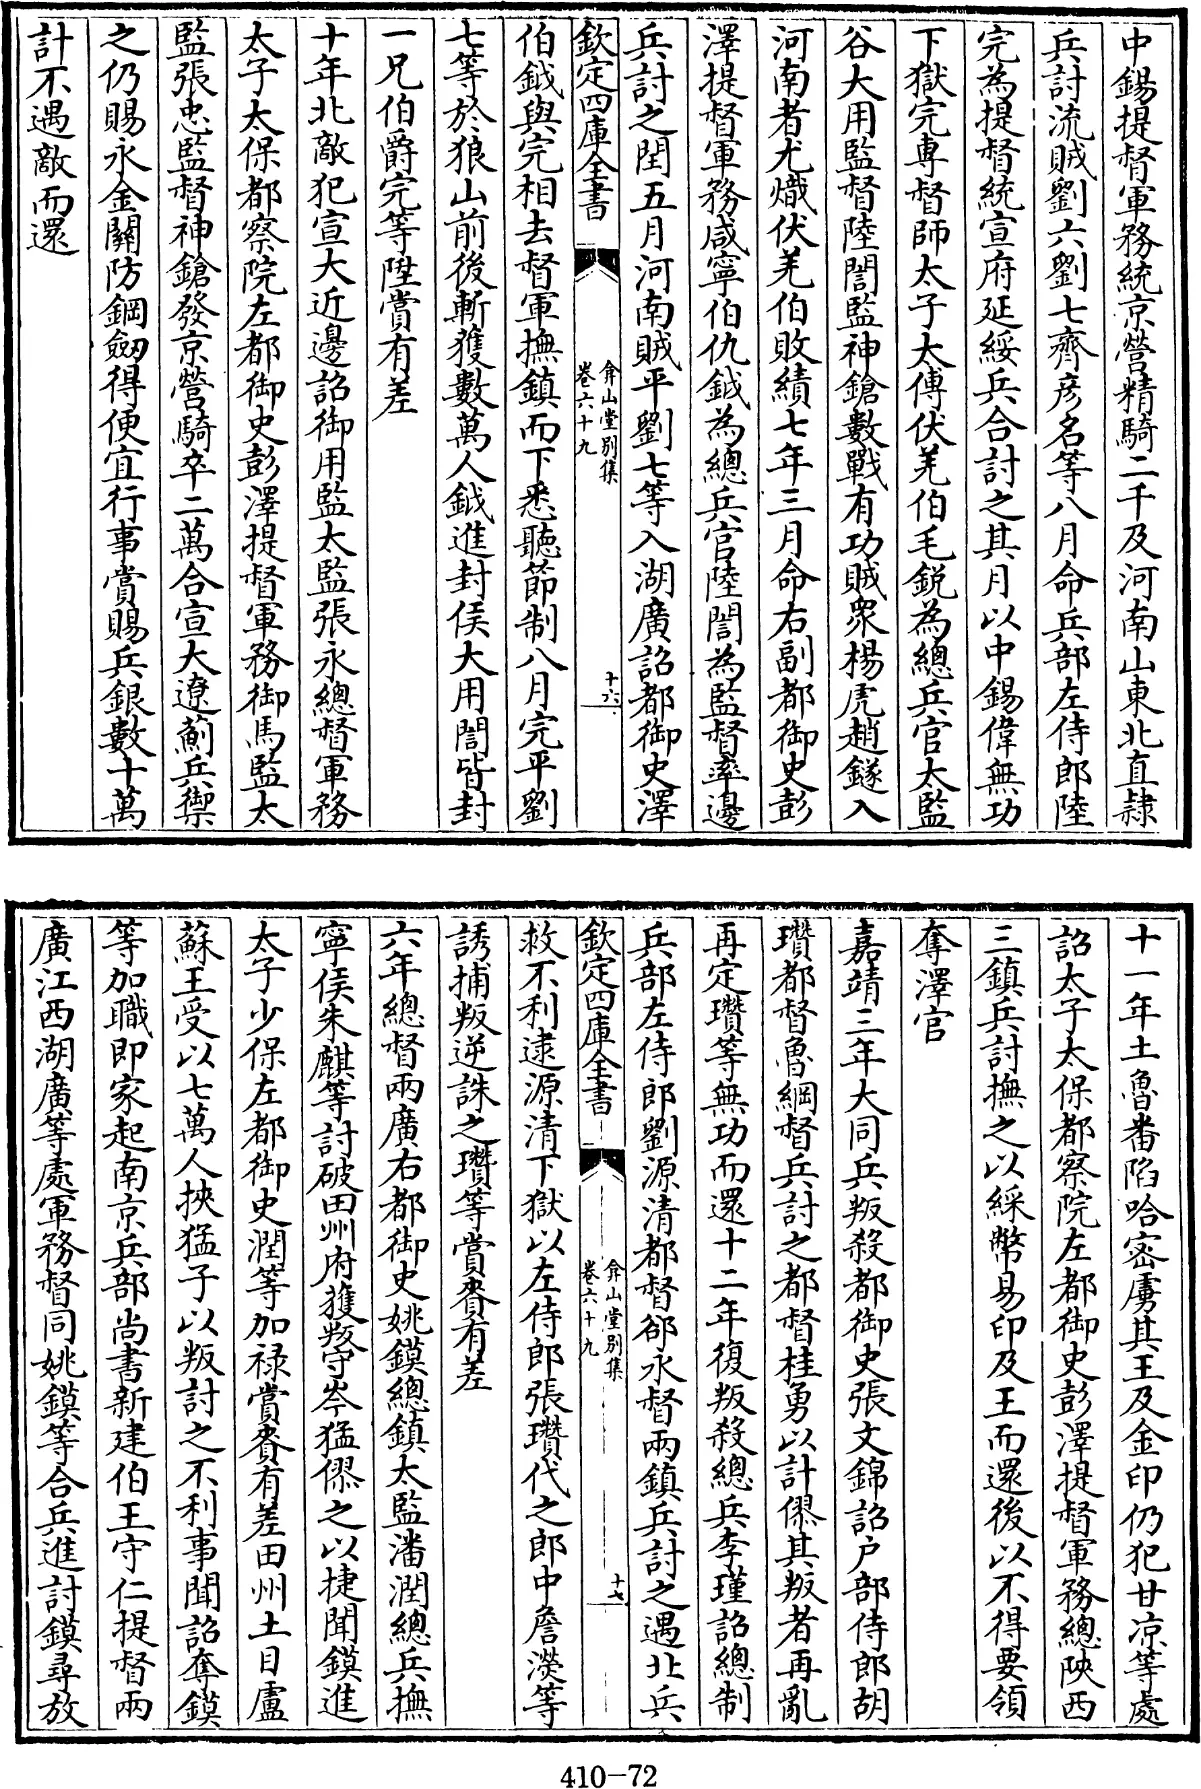 中錫提督軍務統京營精騎二千及河南山東北直隷
兵討流賊劉六劉七齊彦名等八月命兵部左侍郎陸
完為提督統宣府延綏兵合討之其月以中錫偉無功
下獄完専督師太子太傅伏羌伯毛鋭為總兵官太監
谷大用監督陸誾監神鎗數戰有功賊衆楊虎趙鐩入
河南者尤熾伏羌伯敗績七年三月命右副都御史彭
澤提督軍務咸寧伯仇鉞為總兵官陸誾為監督率邊
兵討之閏五月河南賊平劉七等入湖廣詔都御史澤
欽定四庫全書
弇山堂别集
卷六十九
十六
伯鉞與完相去督軍撫鎮而下悉聽節制八月完平劉
七等於狼山前後斬獲數萬人鉞進封侯大用誾皆封
一兄伯爵完等陞賞有差
十年北敵犯宣大近邊詔御用監太監張永總督軍務
太子太保都察院左都御史彭澤提督軍務御馬監太
監張忠監督神鎗發京營騎卒二萬合宣大遼薊兵禦
之仍賜永金關防鋼劒得便宜行事賞賜兵銀數十萬
計不遇敵而還
十一年土魯番陷哈密虜其王及金印仍犯甘凉等處
詔太子太保都察院左都御史彭澤提督軍務總陜西
三鎮兵討撫之以綵幣易印及王而還後以不得要領
奪澤官
嘉靖三年大同兵叛殺都御史張文錦詔户部侍郎胡
瓚都督魯綱督兵討之都督桂勇以計僇其叛者再亂
再定瓚等無功而還十二年復叛殺總兵李瑾詔總制
兵部左侍郎劉源清都督郤永督兩鎮兵討之遇北兵
欽定四庫全書
弇山堂别集
卷六十九
十七
救不利逮源清下獄以左侍郎張瓚代之郎中詹濙等
誘捕叛逆誅之瓚等賞賚有差
六年總督兩廣右都御史姚鏌總鎮太監潘潤總兵撫
寧侯朱麒等討破田州府獲叛守岑猛僇之以捷聞鏌進
太子少保左都御史潤等加禄賞賚有差田州土目盧
蘇王受以七萬人挾猛子以叛討之不利事聞詔奪鏌
等加職即家起南京兵部尚書新建伯王守仁提督兩
廣江西湖廣等處軍務督同姚鏌等合兵進討鏌尋放
410-72